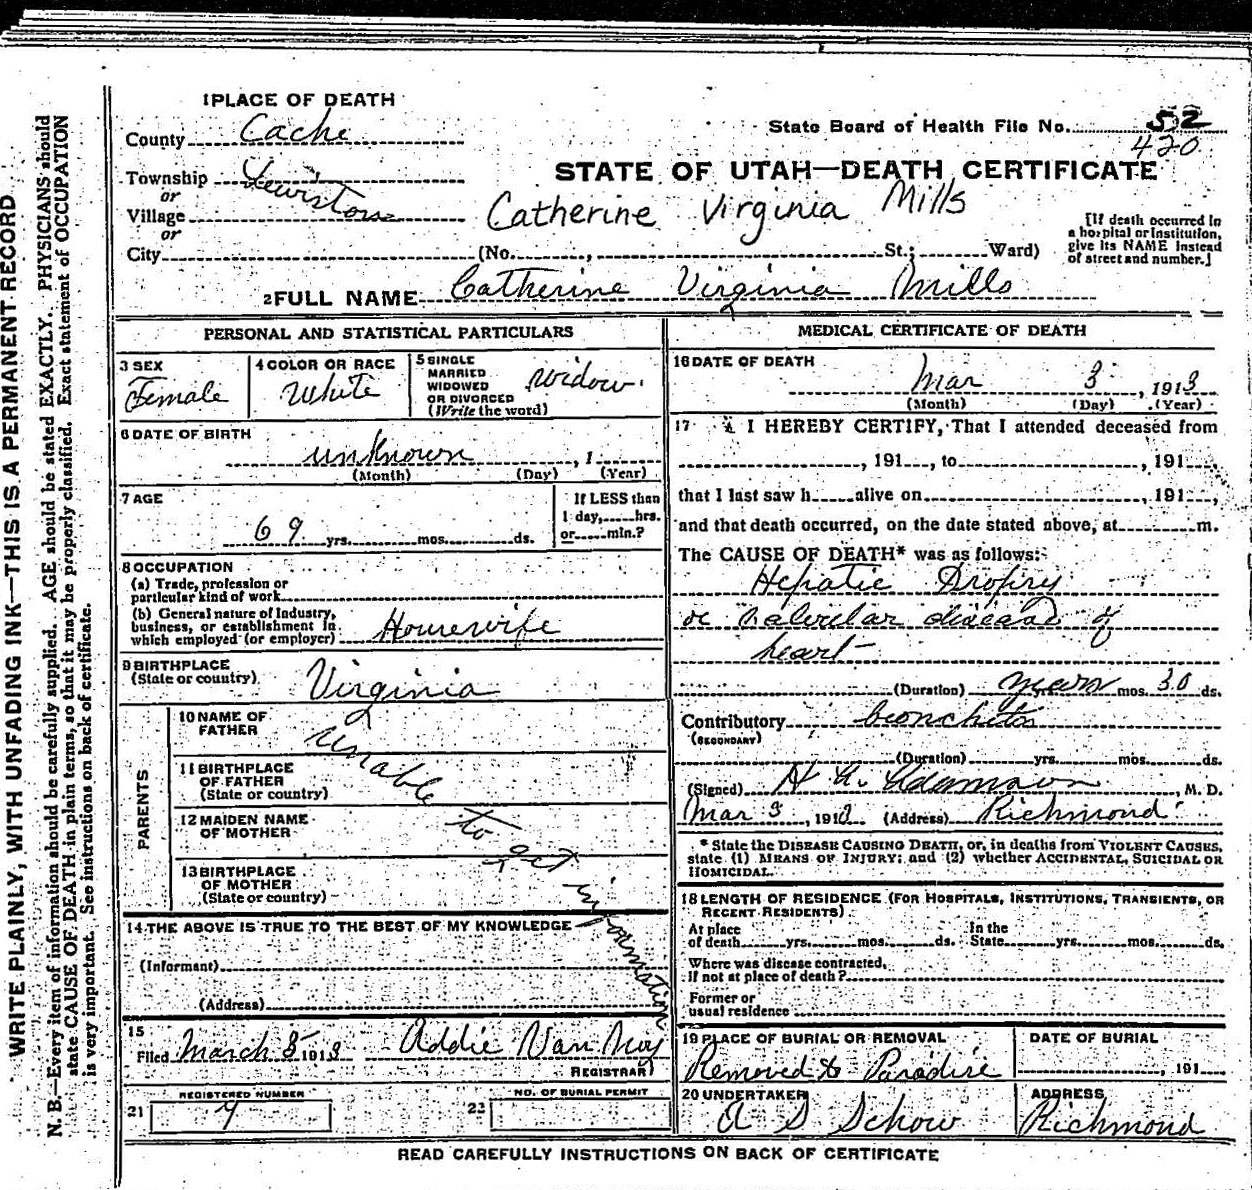 WRITE PLAINLY, WITH UNFADING INK—THIS IS A PERMANENT RECORD
N. B.—Every item of information should be carefully supplied. AGE should be stated EXACTLY. PHYSICIANS should
state CAUSE OF DEATH in plain terms, so that it may be properly classified. Exact statement of OCCUPATION
is very important. See instructions on back of certificate.
1 PLACE OF DEATH
County Cache
State Board of Health File No. 52
420
Township Lewiston
or
Village
or
STATE OF UTAH—DEATH CERTIFICATE
Catherine Virginia Mills
[If death occurred in
a hospital or institution,
give its NAME instead
of street and number.]
City (No. , St.; Ward)
2 FULL NAME Catherine Virginia Mills
PERSONAL AND STATISTICAL PARTICULARS
3 SEX
Female
4 COLOR OR RACE
White
5 SINGLE
MARRIED
WIDOWED
OR DIVORCED
(Write the word)
Widow.
6 DATE OF BIRTH
unknown , 1
(Month) (Day) (Year)
7 AGE
69 yrs. mos. ds.
If LESS than
1 day, hrs.
or min.?
8 OCCUPATION
(a) Trade, profession or
particular kind of work
(b) General nature of Industry,
business, or establishment in
which employed (or employer) Housewife
9 BIRTHPLACE
(State or country)
Virginia
PARENTS
10 NAME OF
FATHER
11 BIRTHPLACE
OF FATHER
(State or country)
12 MAIDEN NAME
OF MOTHER
13 BIRTHPLACE
OF MOTHER
(State or country)
Unable to get information
14 THE ABOVE IS TRUE TO THE BEST OF MY KNOWLEDGE
(Informant)
(Address)
15
Filed March 3 1913 Addie Van Noy
REGISTRAR
REGISTERED NUMBER
21
NO. OF BURIAL PERMIT
22
MEDICAL CERTIFICATE OF DEATH
16 DATE OF DEATH
Mar 3 , 1913
(Month) (Day) (Year)
17 I HEREBY CERTIFY, That I attended deceased from
, 191 , to , 191 ,
that I last saw h alive on , 191 ,
and that death occurred, on the date stated above, at m.
The CAUSE OF DEATH* was as follows:
Hepatic Dropsy
or valvular disease of
heart
(Duration) years mos. 30 ds.
Contributory bronchitis
(SECONDARY)
(Duration) yrs. mos. ds.
(Signed) H A Adamson , M. D.
Mar 3 , 1913 (Address) Richmond
* State the DISEASE CAUSING DEATH, or, in deaths from VIOLENT CAUSES,
state (1) MEANS OF INJURY; and (2) whether ACCIDENTAL, SUICIDAL OR
HOMICIDAL.
18 LENGTH OF RESIDENCE (FOR HOSPITALS, INSTITUTIONS, TRANSIENTS, OR
RECENT RESIDENTS)
At place
of death yrs. mos. ds.
In the
State yrs. mos. ds.
Where was disease contracted,
If not at place of death?
Former or
usual residence
19 PLACE OF BURIAL OR REMOVAL
Removed to Paradise
DATE OF BURIAL
, 191
20 UNDERTAKER
A S Schow
ADDRESS
Richmond
READ CAREFULLY INSTRUCTIONS ON BACK OF CERTIFICATE